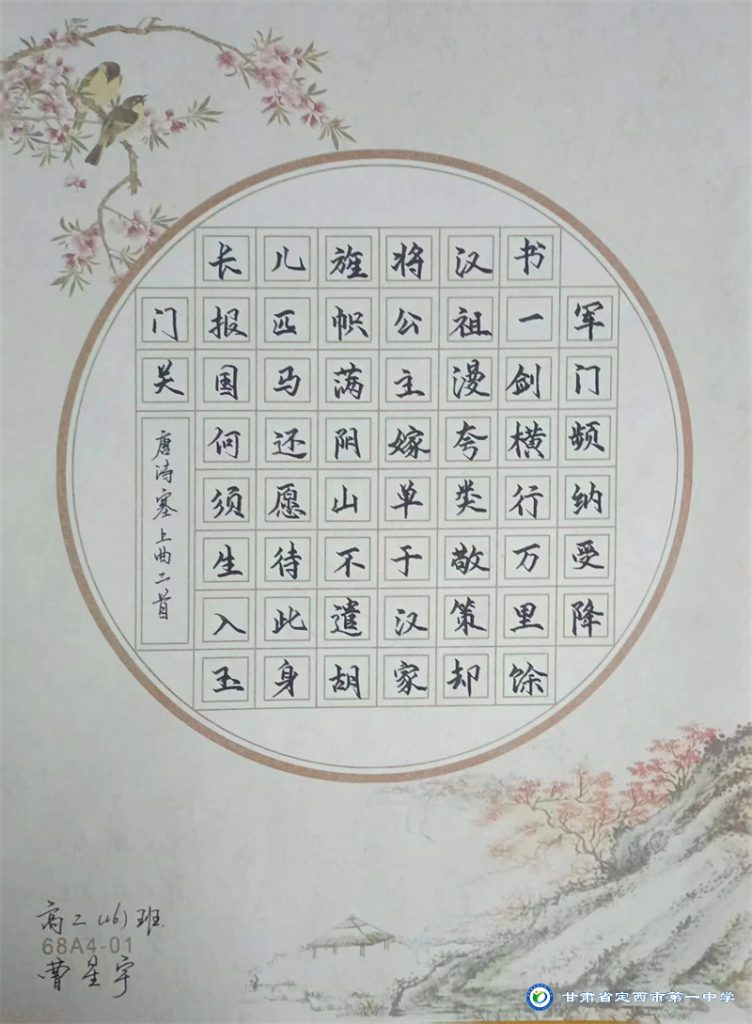 军门频纳受降
书一剑横行万里馀
汉祖漫夸类敬策却
将公主嫁单于汉家
旌帜满阴山不遣胡
儿匹马还愿待此身
长报国何须生入玉
门关
唐诗塞上曲二首
高二(16)班
68A4-01
曹星宇
甘肃省定西市第一中学